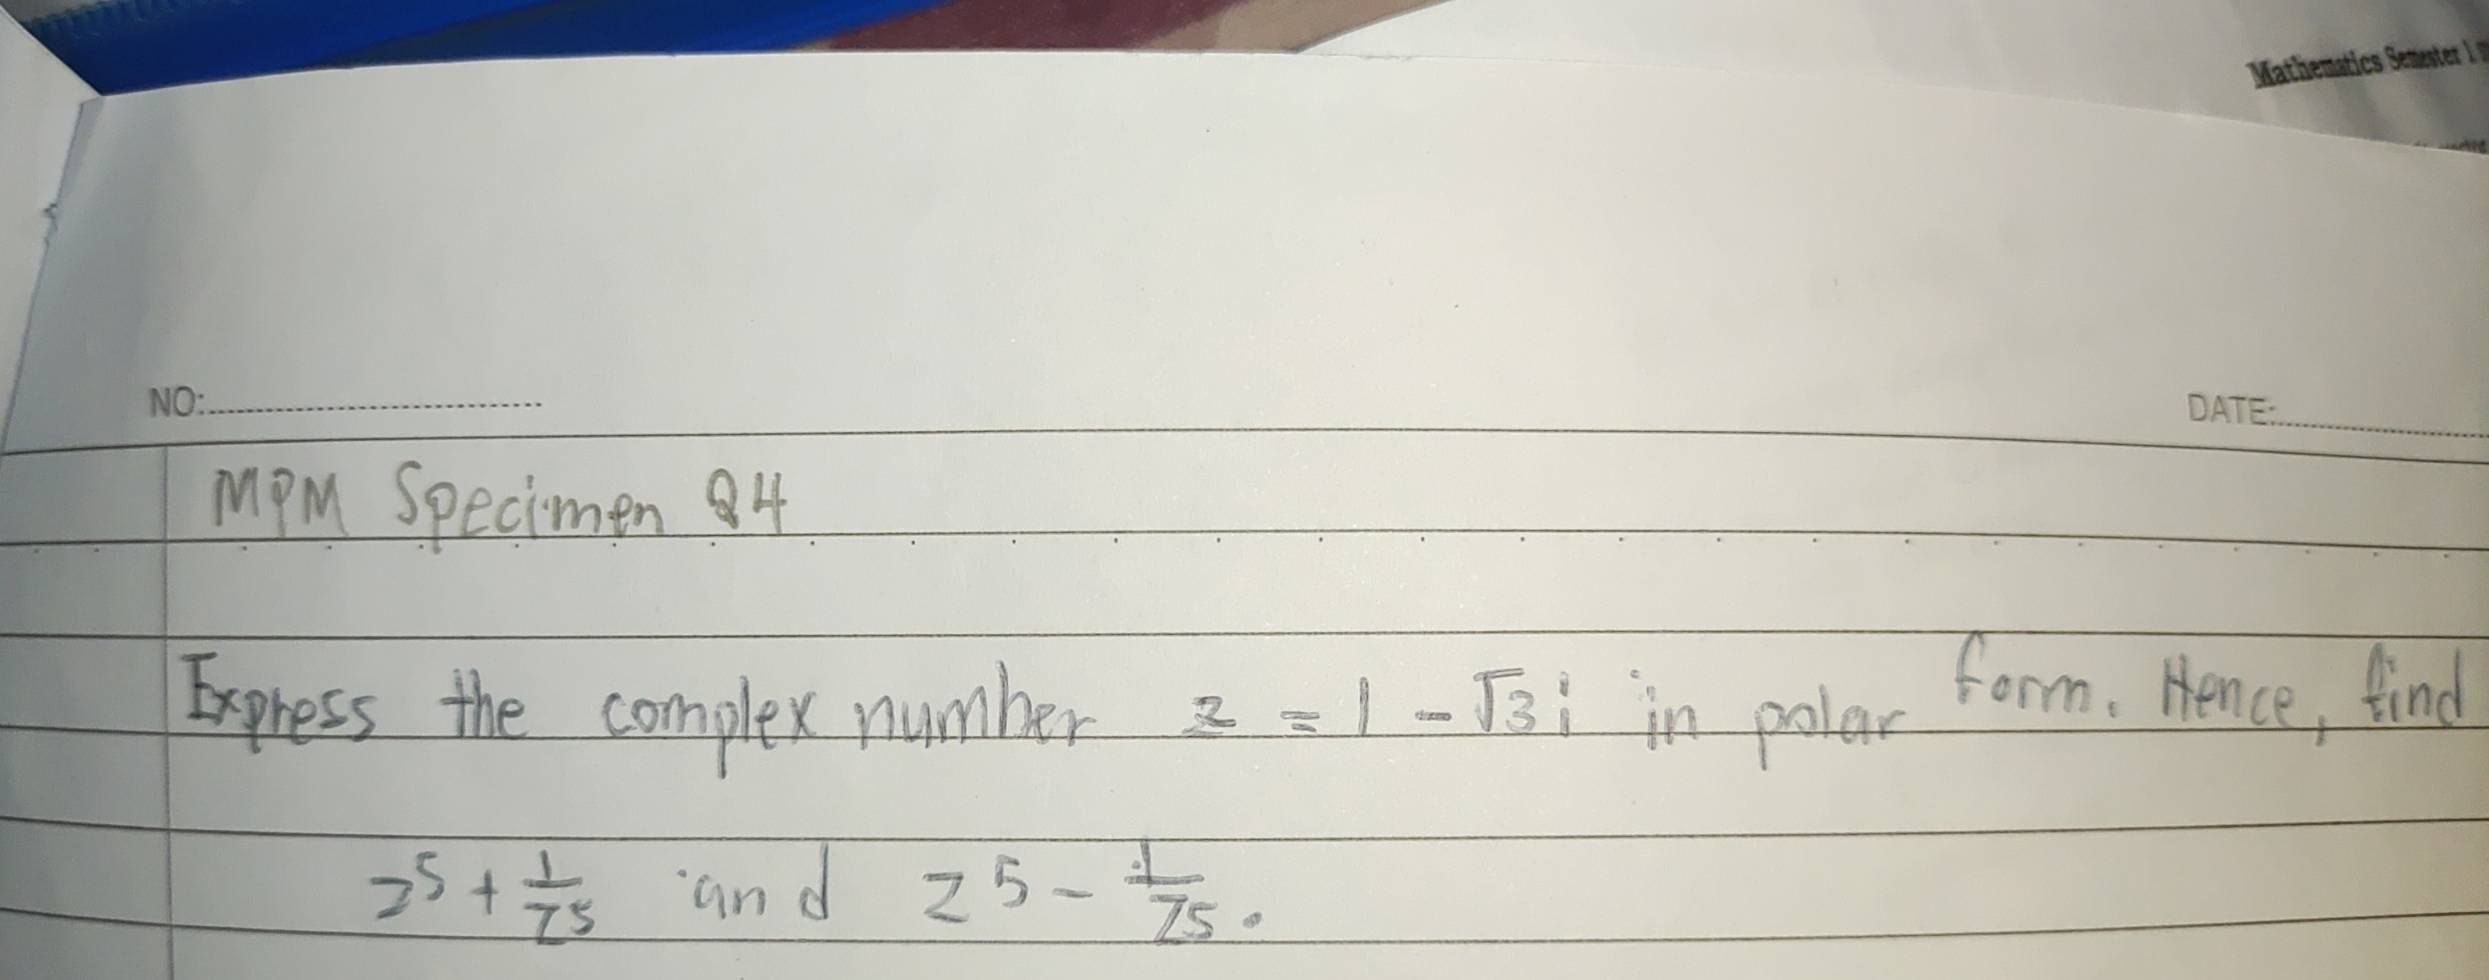 Mathematics Semester 1
NO:
DATE:
MPM Specimen Q4
Express the complex number z = 1 - √3 i in polar form. Hence, find
z⁵ + 1/z⁵ and z⁵ - 1/z⁵.